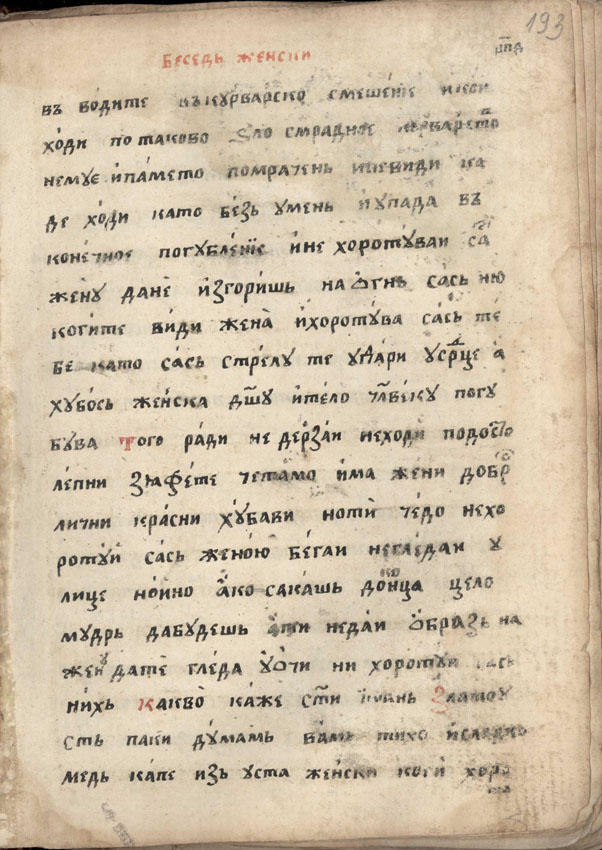 193
бесѣдь женски
въ водите въ курварско смешенїе и кои
ходи по таково ѕло смрадное
немꙋе и памето помрачень и не види ка
де ходи като безь умень и упада въ
конечное погубленїе и не хоротꙋваи са
женꙋ да не изгоришь на огнь сась ню
когите види жена и хоротꙋва сась те
бе като сась стрелꙋ те удари у срце а
хꙋбось женска дш҃ꙋ и тело чл҃векꙋ погꙋ
бꙋва того ради не дерзаи не ходи по
лепни че тамо има жени добр
лични красни хꙋбави но ти чедо не хо
ротꙋи сась женою бегаи не гледаи у
лице нойно ако сакашь до конца цело
мꙋдрь да бꙋдешь недаи образь на
женꙋ да те гледа у очи ни хоротꙋи сась
нихь какво каже ст҃и їѡань златоꙋ
сть паки дꙋмамь вамь тихо и сладко
медь капе изь уста женски коги хоро